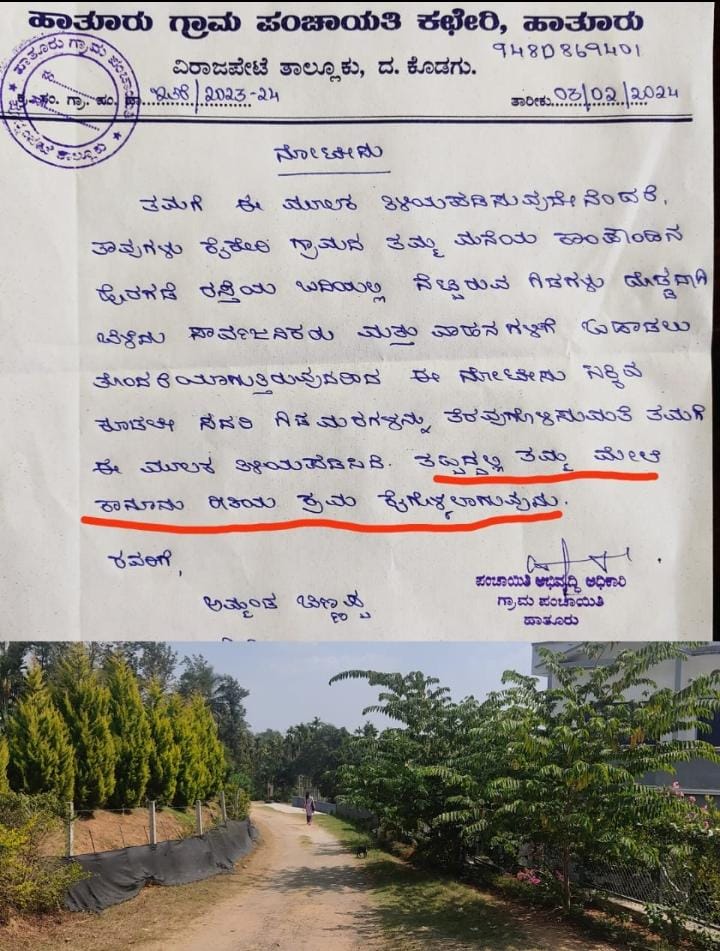 ಹಾತೂರು ಗ್ರಾಮ ಪಂಚಾಯತಿ ಕಛೇರಿ, ಹಾತೂರು
9480869401
ವಿರಾಜಪೇಟೆ ತಾಲ್ಲೂಕು, ದ. ಕೊಡಗು.
ಗ್ರಾ. ಪಂ. ಹಾ. 2023-24
ತಾರೀಕು 03/02/2024
ನೋಟೀಸು
ತಮಗೆ ಈ ಮೂಲಕ ತಿಳಿಯಪಡಿಸುವುದೇನೆಂದರೆ,
ತಾವುಗಳು ಕೈಕೇರಿ ಗ್ರಾಮದ ತಮ್ಮ ಮನೆಯ ಕಾಂಪೌಂಡಿನ
ಹೊರಗಡೆ ರಸ್ತೆಯ ಬದಿಯಲ್ಲಿ ನೆಟ್ಟಿರುವ ಗಿಡಗಳು ದೊಡ್ಡದಾಗಿ
ಬೆಳೆದು ಸಾರ್ವಜನಿಕರು ಮತ್ತು ವಾಹನಗಳಿಗೆ ಓಡಾಡಲು
ತೊಂದರೆಯಾಗುತ್ತಿರುವುದರಿಂದ ಈ ನೋಟೀಸು ಸಿಕ್ಕಿದ
ಕೂಡಲೇ ಸದರಿ ಗಿಡಮರಗಳನ್ನು ತೆರವುಗೊಳಿಸುವಂತೆ ತಮಗೆ
ಈ ಮೂಲಕ ತಿಳಿಯಪಡಿಸಿದೆ. ತಪ್ಪಿದ್ದಲ್ಲಿ ತಮ್ಮ ಮೇಲೆ
ಕಾನೂನು ರೀತಿಯ ಕ್ರಮ ಕೈಗೊಳ್ಳಲಾಗುವುದು.
ರವರಿಗೆ,
ಅಮ್ಮಂಡ ಚಿಣ್ಣಪ್ಪ
ಪಂಚಾಯಿತಿ ಅಭಿವೃದ್ಧಿ ಅಧಿಕಾರಿ
ಗ್ರಾಮ ಪಂಚಾಯಿತಿ
ಹಾತೂರು